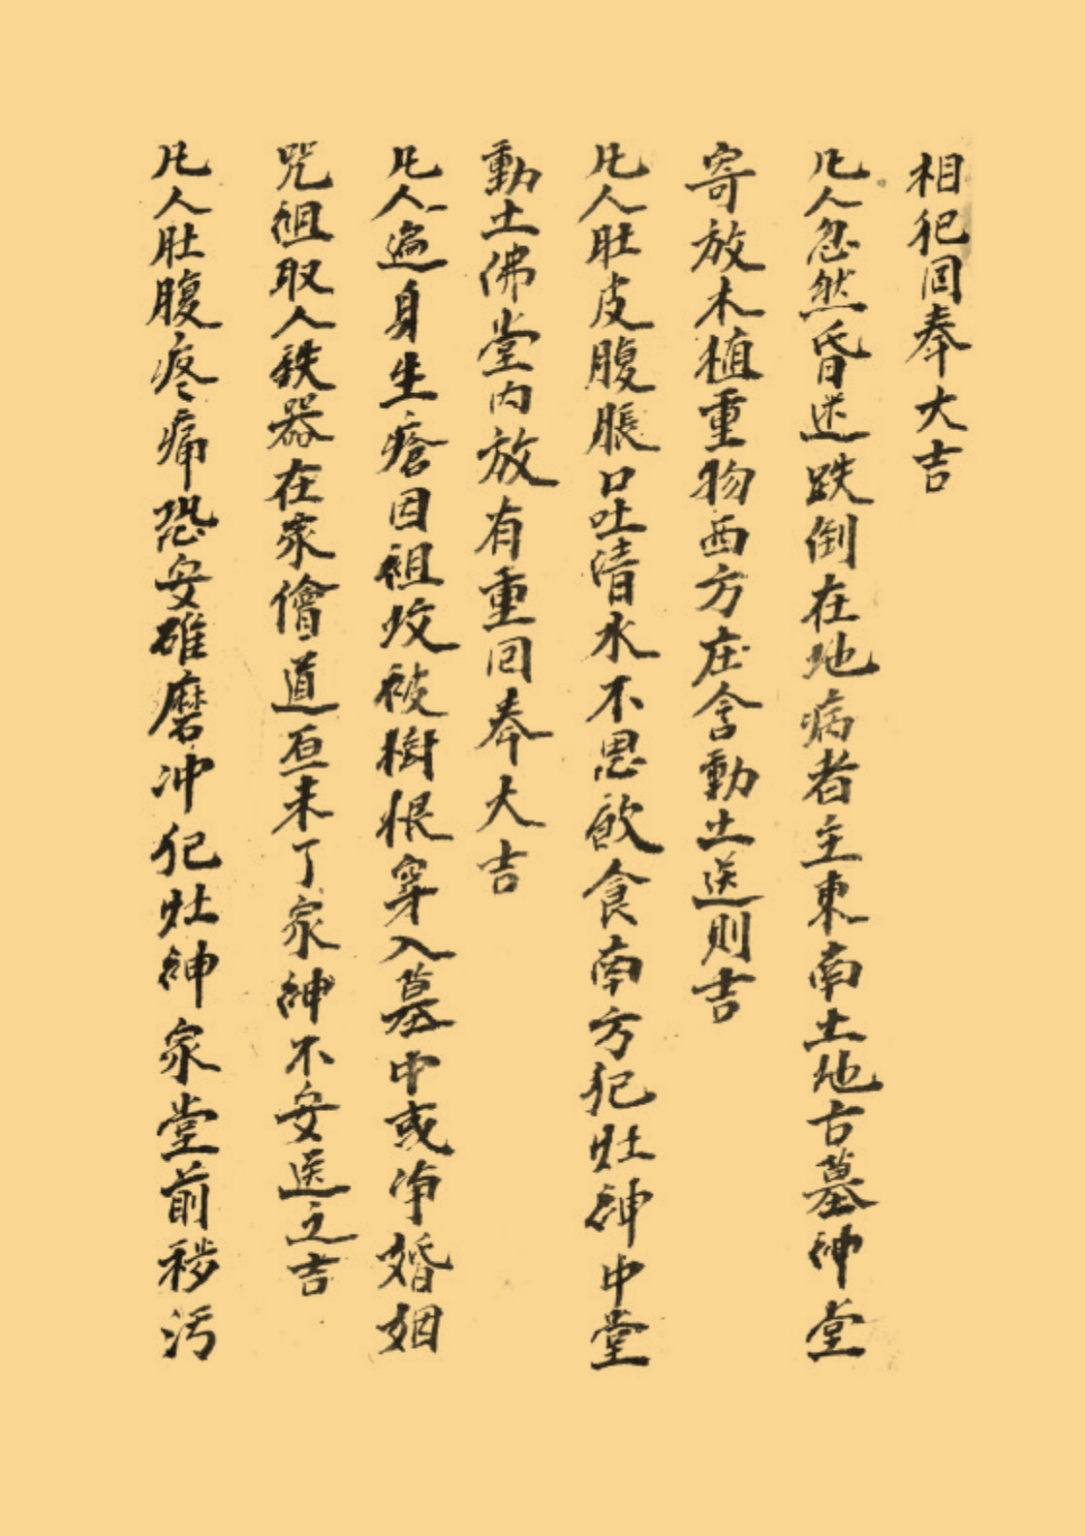 相犯回奉大吉
凡人忽然昏迷跌倒在地病者主東南土地古墓神堂
寄放木植重物西方庄舍動土送則吉
凡人肚皮腹脹口吐清水不思飲食南方犯灶神中堂
動土佛堂内放有重回奉大吉
凡人遍身生瘡因祖坟被樹根穿入墓中或净婚姻
咒祖取人鉄器在家儈道亟未了家神不安送之吉
凡人肚腹疼痛恐安碓磨冲犯灶神家堂前穢污